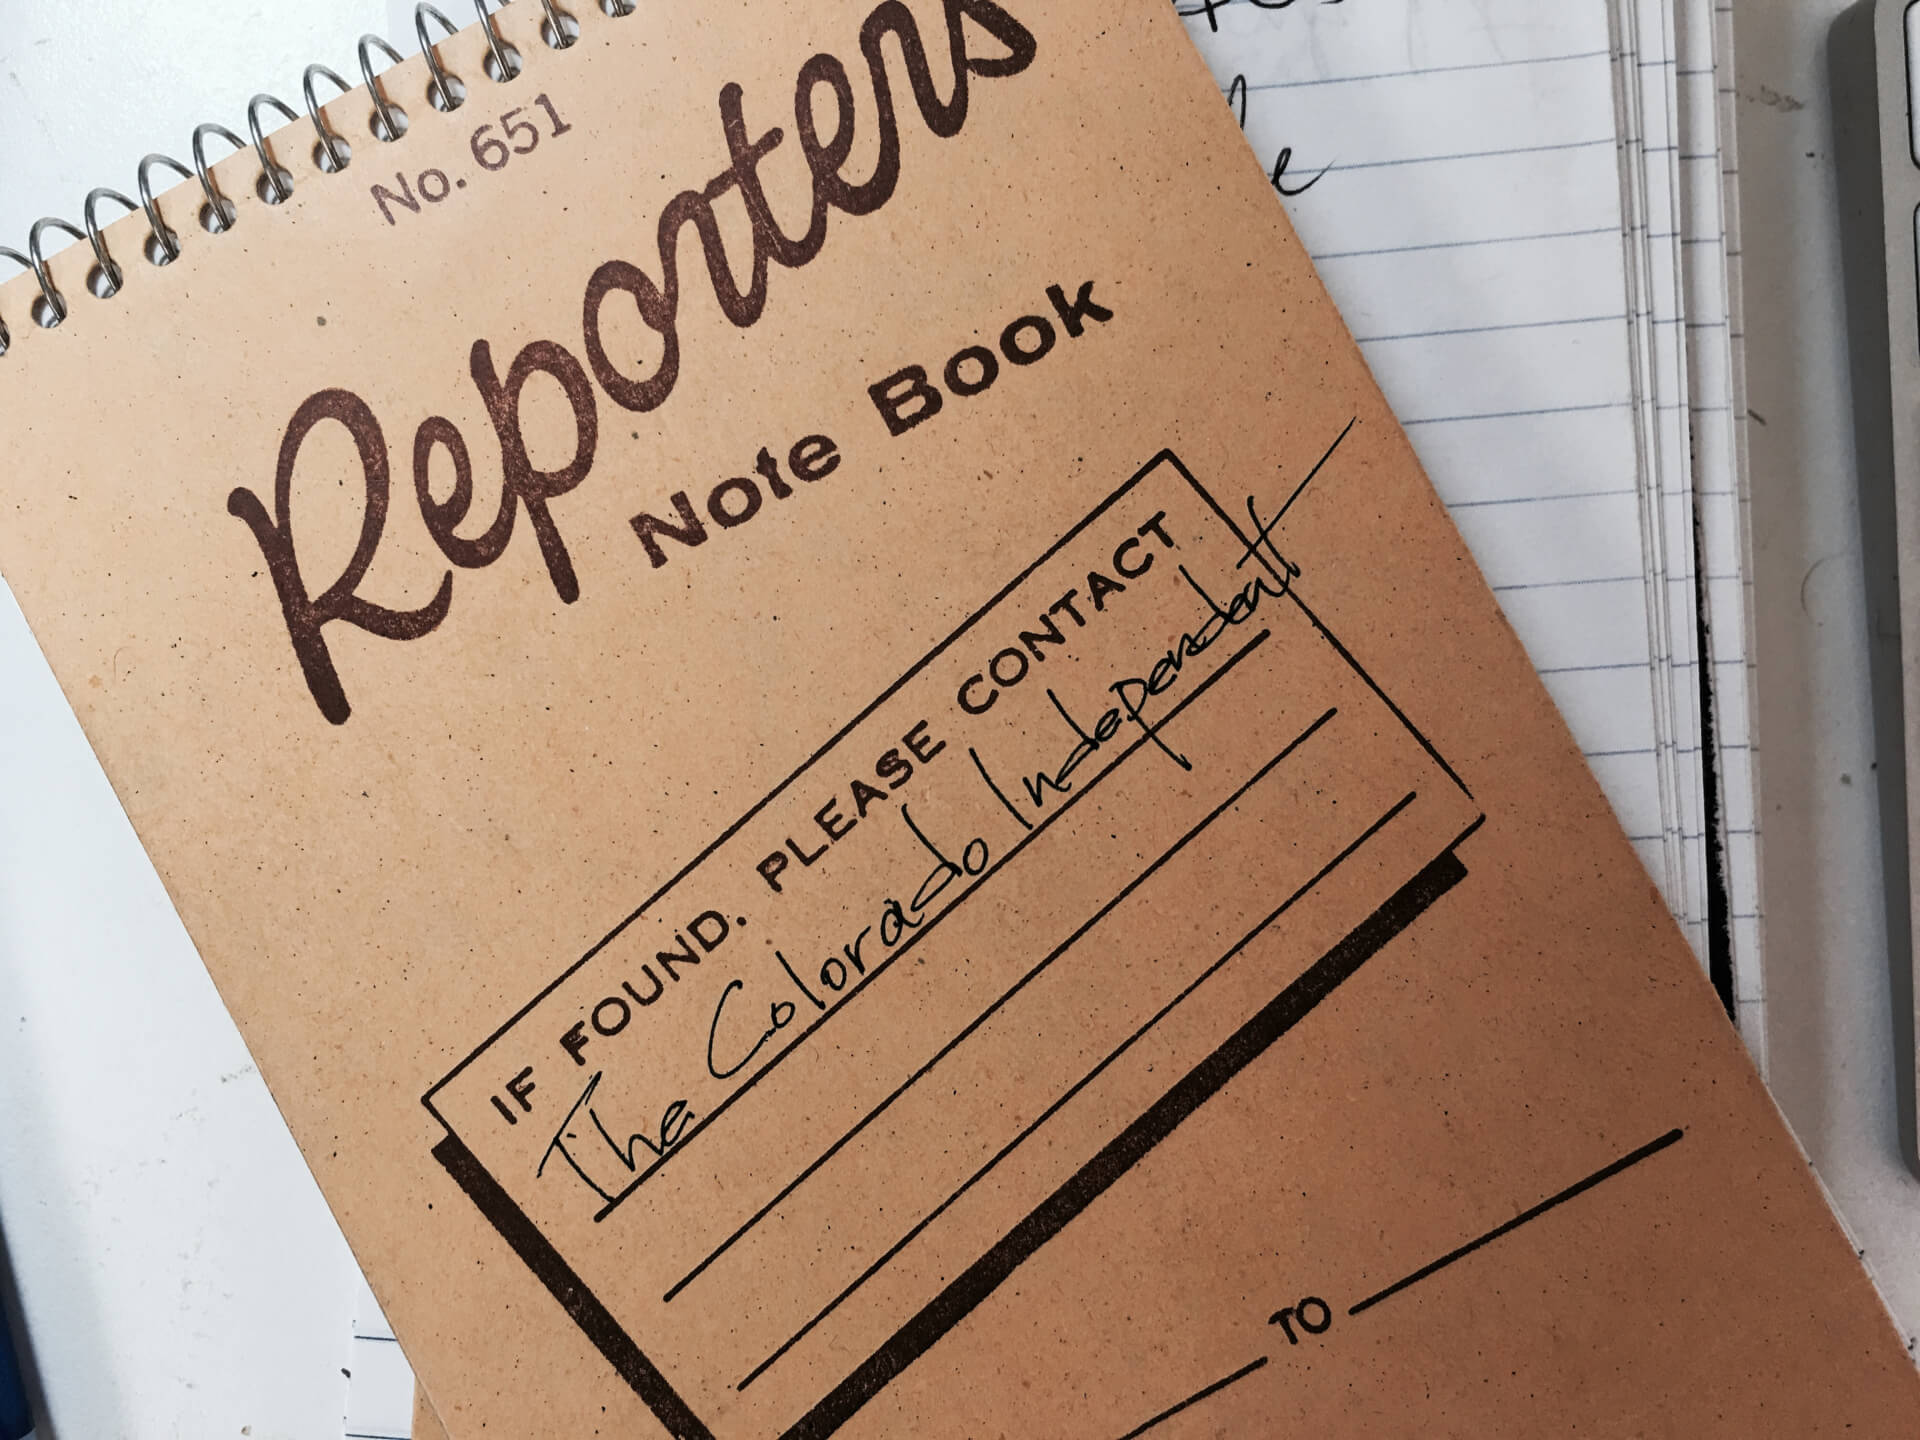 No. 651
Reporters
Note Book
IF FOUND, PLEASE CONTACT
The Colorado Independent
TO